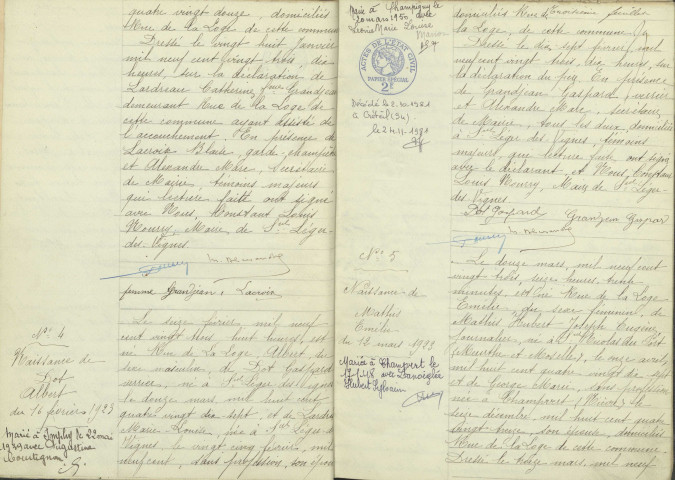 quatre vingt douze domiciliés
Rue de la Loge de cette commune
Dressé le vingt huit janvier
mil neuf cent vingt trois, dix
heures, sur la déclaration de
Lardreau Catherine fme Grandjean
demeurant Rue de la Loge de
cette commune ayant assisté de
l'accouchement. En présence de
Lacroix Blaise, garde champêtre
et Alexandre Marc, Secrétaire
de Mairie, témoins majeurs
qui lecture faite ont signé
avec Nous, Constant Louis
Mourry, Maire de St Léger
des Vignes.
femme Grandjean Lacroix
No 4
Naissance de
Dot
Albert
du 16 février 1923
Marié à Imphy le 22 mai
1949 avec Augustine
Le seize février, mil neuf
cent vingt trois, huit heures, est
né Rue de la Loge, Albert du
sexe masculin, de Dot Gaspard
né à St Léger des Vignes
le douze mars mil huit cent
quatre vingt dix sept et de Lardreau
Marie Louise, née à St Léger des
Vignes le vingt cinq février, mil
neuf cent, sans profession, son épouse
domiliés Rue de
la Loge, de cette commune
Dressé le dix sept février, mil
neuf cent vingt trois, dix heures, sur
la déclaration du père. En présence
de Grandjean Gaspard, verrier
et Alexandre Marc, secrétaire
de Mairie, tous les deux domiciliés
à St Léger des Vignes, témoins
majeurs, que lecture faite ont signé
avec le déclarant et Nous, Constant
Louis Mourry, Maire de St Léger
des Vignes
Dot Gaspard Grandjean Gaspar
Marié à Champigny le
20 mars 1950 avec
Leonie Marie Louise
ACTES DE L'ÉTAT CIVIL
PAPIER SPÉCIAL
2F
Divorcé le 2.10.1981
à Créteil (94)
le 24.11.1981
No 5
Naissance de
Mathis
Emilie
du 12 mars 1923
Mariée à Champvert le
17/1/48 avec
Hubert Sylvain
Le douze mars, mil neuf cent
vingt trois, seize heures, trente
minutes est née Rue de la Loge
Emilie, du sexe féminin, de
Mathis Hubert Joseph Eugène
Journalier, né à St Nicolas du Port
(Meurthe et Moselle), le onze avril
mil huit cent quatre vingt dix sept
et de George Marie, sans profession
née à Champvert (Nièvre) le
seize décembre, mil huit cent quatre
vingt onze, son épouse, domiciliés
Rue de la Loge de cette commune
Dressé le treize mars, mil neuf